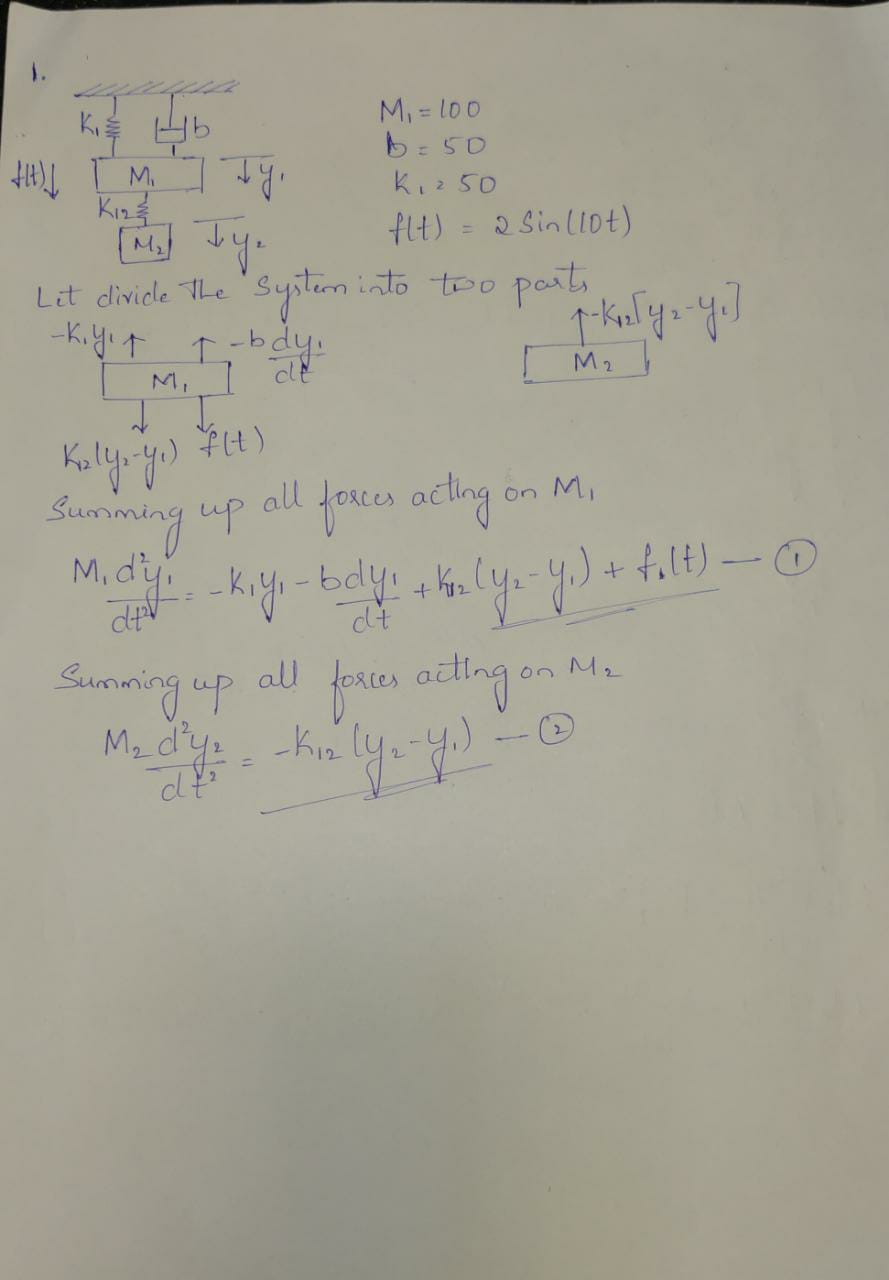 1.
K₁ b
f(t)↓ M₁ ↓y₁
K₁₂
M₂ ↓y₂
M₁ = 100
b = 50
K₁ = 50
f(t) = 2 Sin(10t)
Let divide The System into two parts
-K₁y₁ ↑ ↑ -b dy₁/dt
M₁
K₁₂(y₂-y₁) f(t)
↑-K₁₂[y₂-y₁]
M₂
Summing up all forces acting on M₁
M₁ d²y₁/dt² = -K₁y₁ - b dy₁/dt + K₁₂(y₂-y₁) + f₁(t) — ①
Summing up all forces acting on M₂
M₂ d²y₂/dt² = -K₁₂(y₂-y₁) — ②